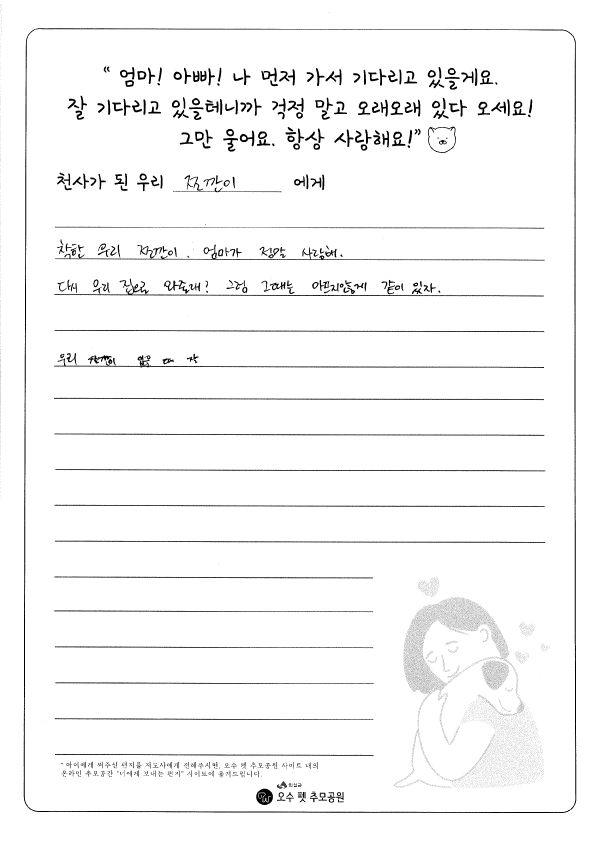 “ 엄마! 아빠! 나 먼저 가서 기다리고 있을게요.
잘 기다리고 있을테니까 걱정 말고 오래오래 있다 오세요!
그만 울어요. 항상 사랑해요!”
천사가 된 우리 쩐깐이 에게
착한 우리 쩐깐이. 엄마가 정말 사랑해.
다시 우리 집으로 와줄래? 그럼 그때는 아프지않게 같이 있자.
우리
* 아이에게 써주신 편지를 지도사에게 전해주시면, 오수 펫 추모공원 사이트 내의
온라인 추모공간 "너에게 보내는 편지" 사이트에 올려드립니다.
임실군
오수 펫 추모공원